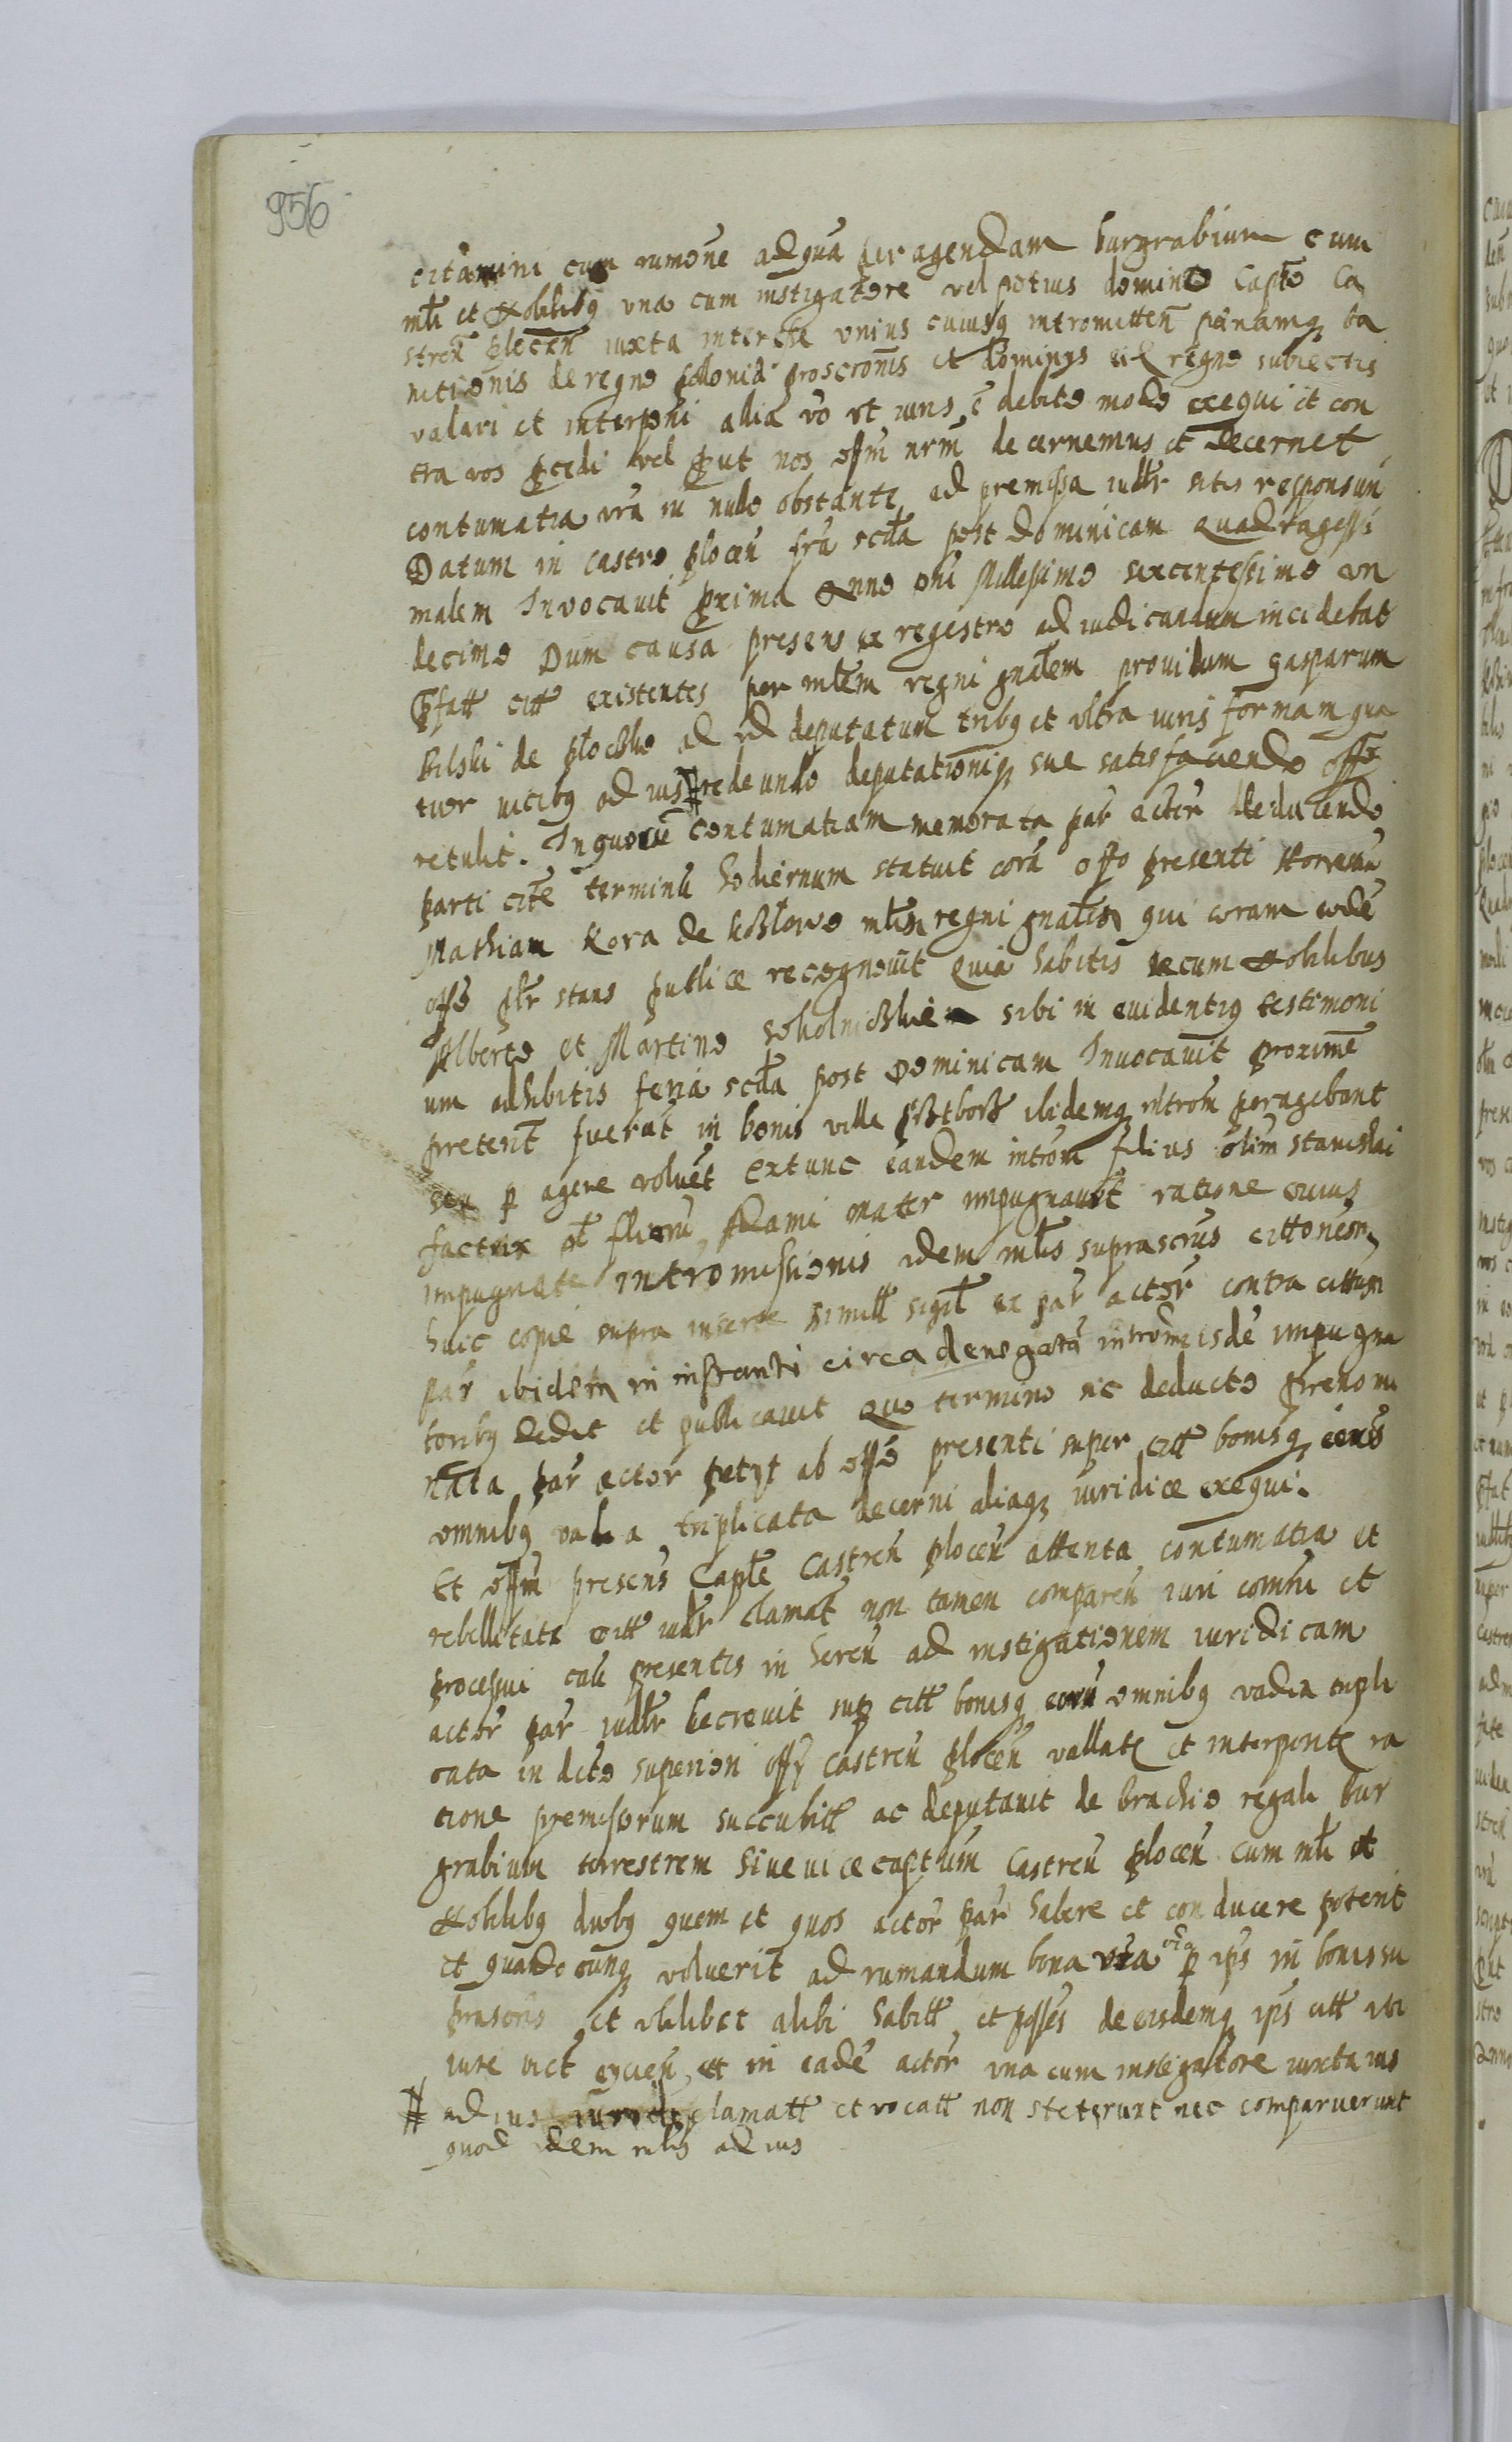 956
citamini cum rumone ad quã peragendam burgrabium cum
mli et Nobilibꝫ una cum instigatore vel potius domino Capto Ca
stren plocen iuxta interesse unius cuiusqꝫ intromitten pænamqꝫ ba
nitionis de regno poloniæ proscronis et dominys eidē regno subiectis
valari et interponi alia vo ut iuris ē debito modo exequi et con
tra vos pcedi vel put nos offm nrm decernemus et decernet
contumatia vra in nullo obstante ad premissa iudlr sitis responsuri
Datum in castro plocen fra scda post dominicam quadragessi
malem Invocavit prima Anno dni Millessimo sexcentessimo un
decimo Dum causa presens ex regestro ad iudicandum incidebat
pfatt citt existentes per mlem regni gnalem providum gasparum
Bilski de plocsko ad id deputatum tribꝫ et ultra iuris formam qua
tuor vicibꝫ ad ius # redeundo deputationiqꝫ sue satisfaciendo offo
retulit. In quorū contumatiam memorata par actor deducendo
parti cite terminū hodiernum statuit corā offo presenti
Mathiam Kora de koslowo mlem regni gnalem qui coram eodē
offo plr stans publice recognovit Quia habitis secum Nobilibus
Alberto et Martino sibi in evidentiꝫ testimoni
um adhibitis feria scda post Dominicam Invocavit proxime
preterit fuerat in bonis ville ibidemqꝫ intrōm peragebant
seu p agere voluēt extunc eandem intrōm filius olim stanislai
factrix et filiorū Adami mater impugnavit ratione cuius
impugnate intromissionis idem mlis suprascrus cittones
huic copie supra inserte simill sigil ex par actor contra cittam
par ibidem in instanti circa denegatā intrōm eisdē impugna
toribꝫ dedit et publicavit Quo termino sic deducto preno mi
nata par actor petyt ab offo presenti super citt bonisqꝫ eorū
omnibꝫ vadia triplicata decerni aliaqꝫ iuridice exequi.
Et offm presens Captle Castren plocen attenta contumatia et
rebellitate citt iudlr clamat non tamen comparen iuri comūi et
processui cāe presentis in heren ad instigationem iuridicam
actor par iudlr decrevit sup citt bonisqꝫ eorū omnibꝫ vadia tripli
cata in dicto superiori offy castren plocen vallate et interponte ra
tione premissorum succubitt ac deputavit de brachio regali bur
grabium terrestrem sive vicecaptum Castren plocen cum mli et
Nobilibꝫ duobꝫ quem et quos actor par habere et conducere poterit
et quando cunqꝫ voluerit ad rumandum bona via p ips in bonis su
prascris et ubilibet alibi habitt et posses de eisdemqꝫ ips citt uti
iure vict eycien, et in eadē actor una cum instigatore iuxta ius
# ad ius clamatt et vocatt non steterunt nec comparuerunt
quod idem mlis ad ius